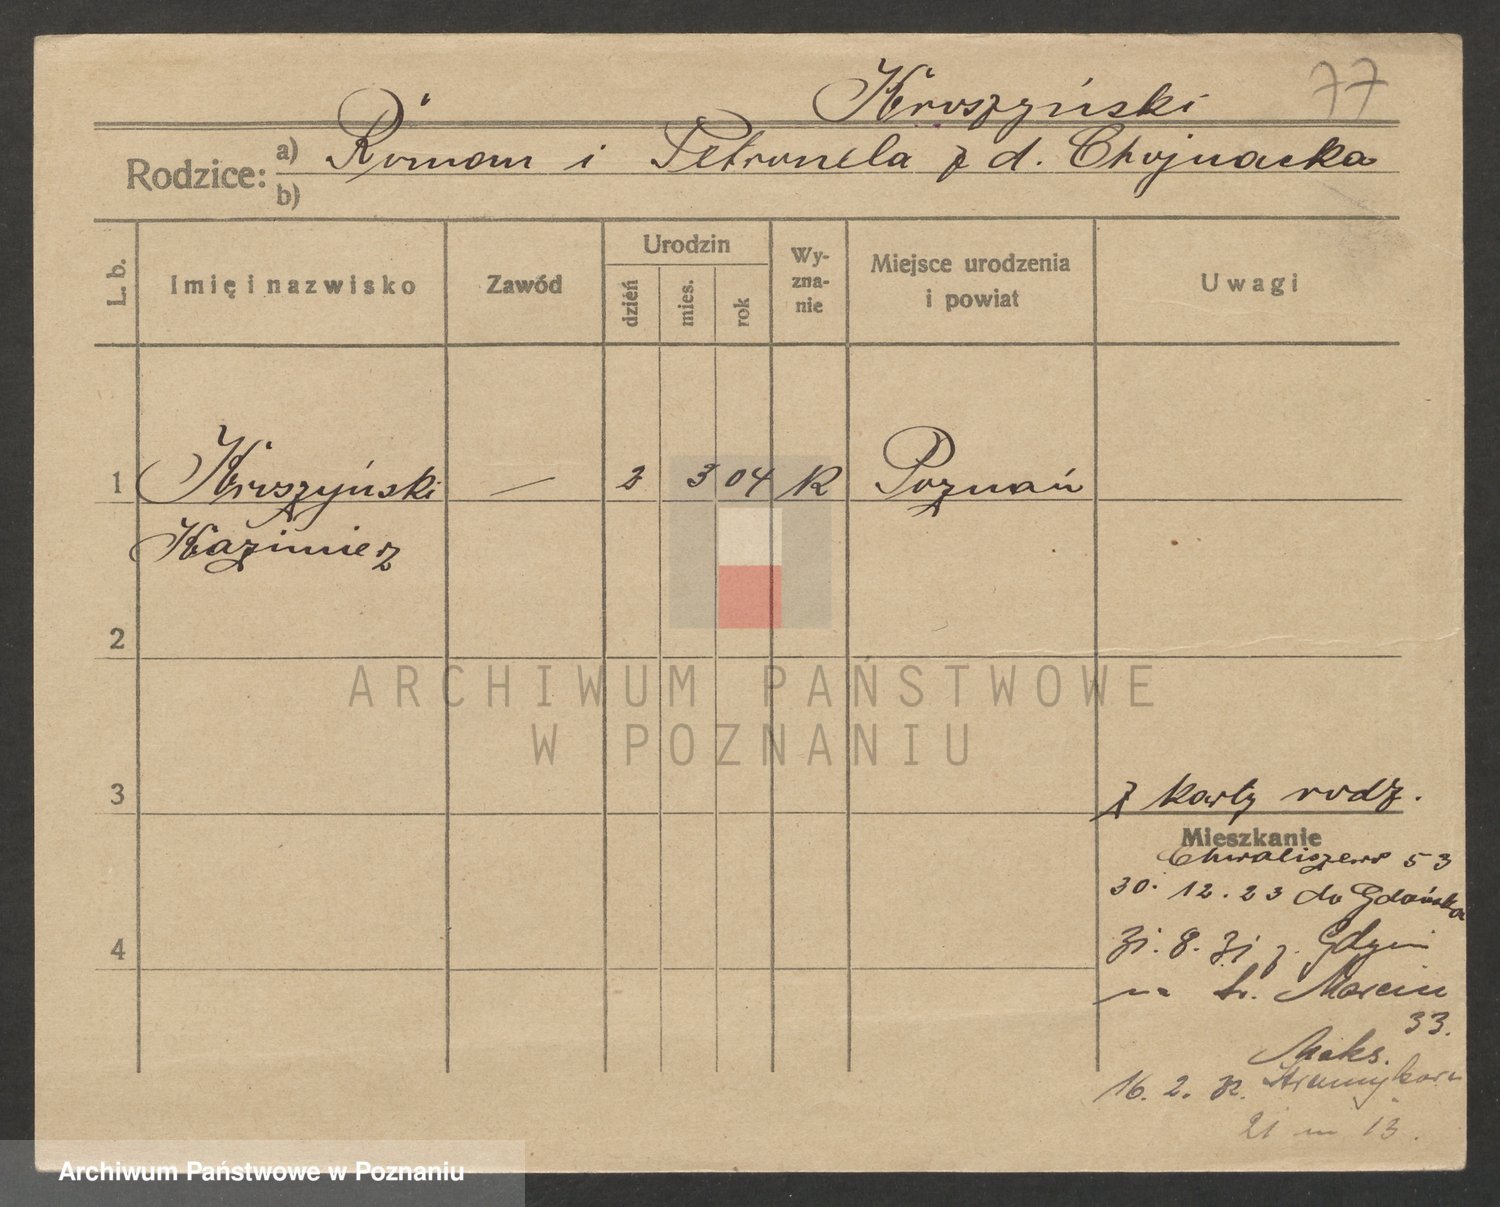 Kruszyński 77
Rodzice: a) Roman i Petronela z d. Chojnacka
b)
L. b. Imię i nazwisko Zawód Urodzin dzień mies. rok Wy-zna-nie Miejsce urodzenia i powiat Uwagi
1 Kruszyński — 2 3 04 R Poznań
Kazimierz
2
ARCHIWUM PAŃSTWOWE
W POZNANIU
3 z karty rodz.
Mieszkanie
Chwaliszewo 53
30. 12. 23 do Gdańska
4 31. 8. 31 z Gdyni
na św. Marcin
33.
16. 2. 32.
21 m 13.
Archiwum Państwowe w Poznaniu